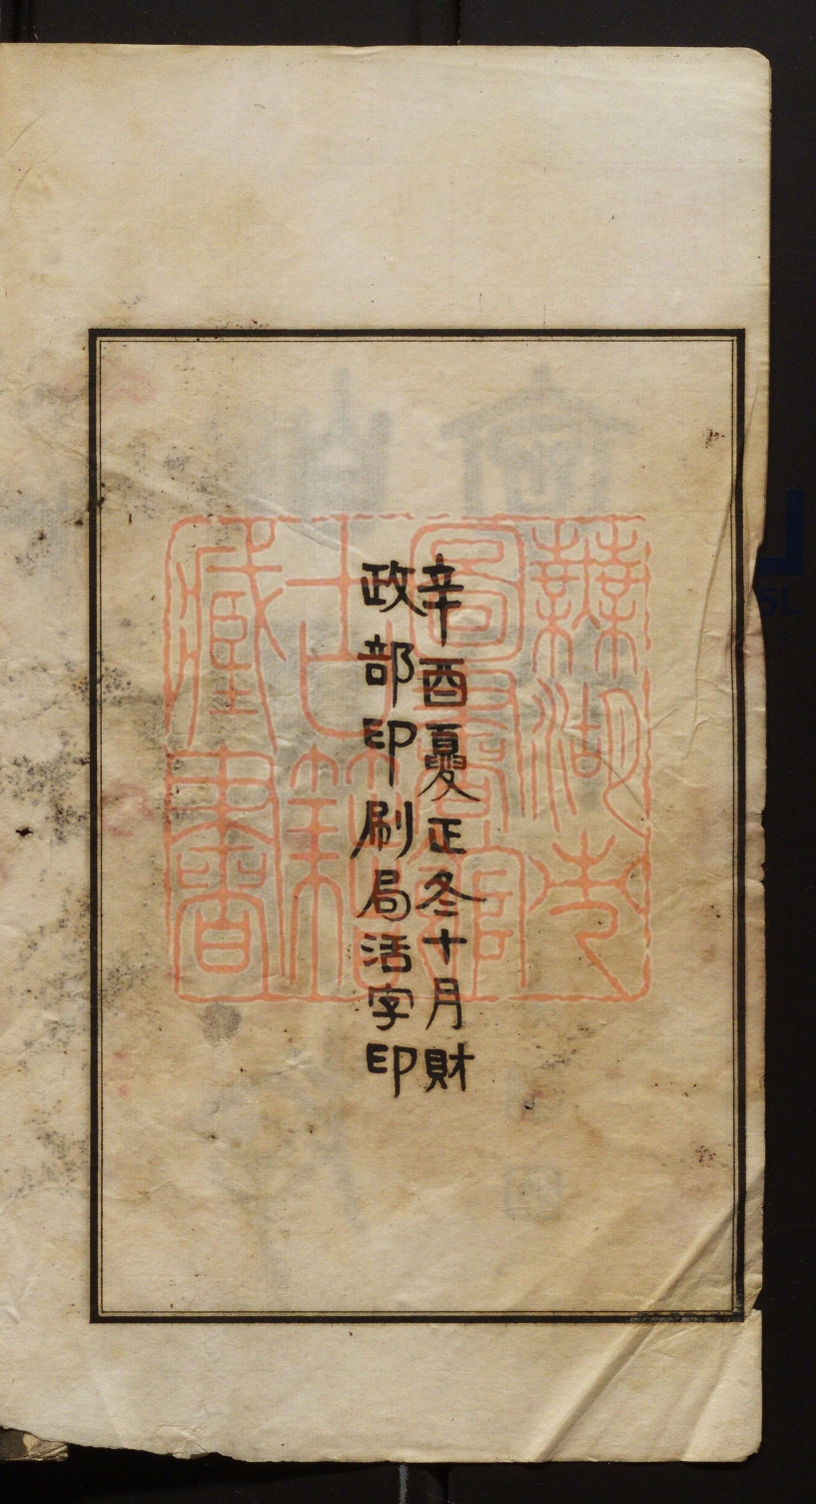 辛酉夏正冬十月財
政部印刷局活字印
蕪湖市
圖書館
古籍
藏書